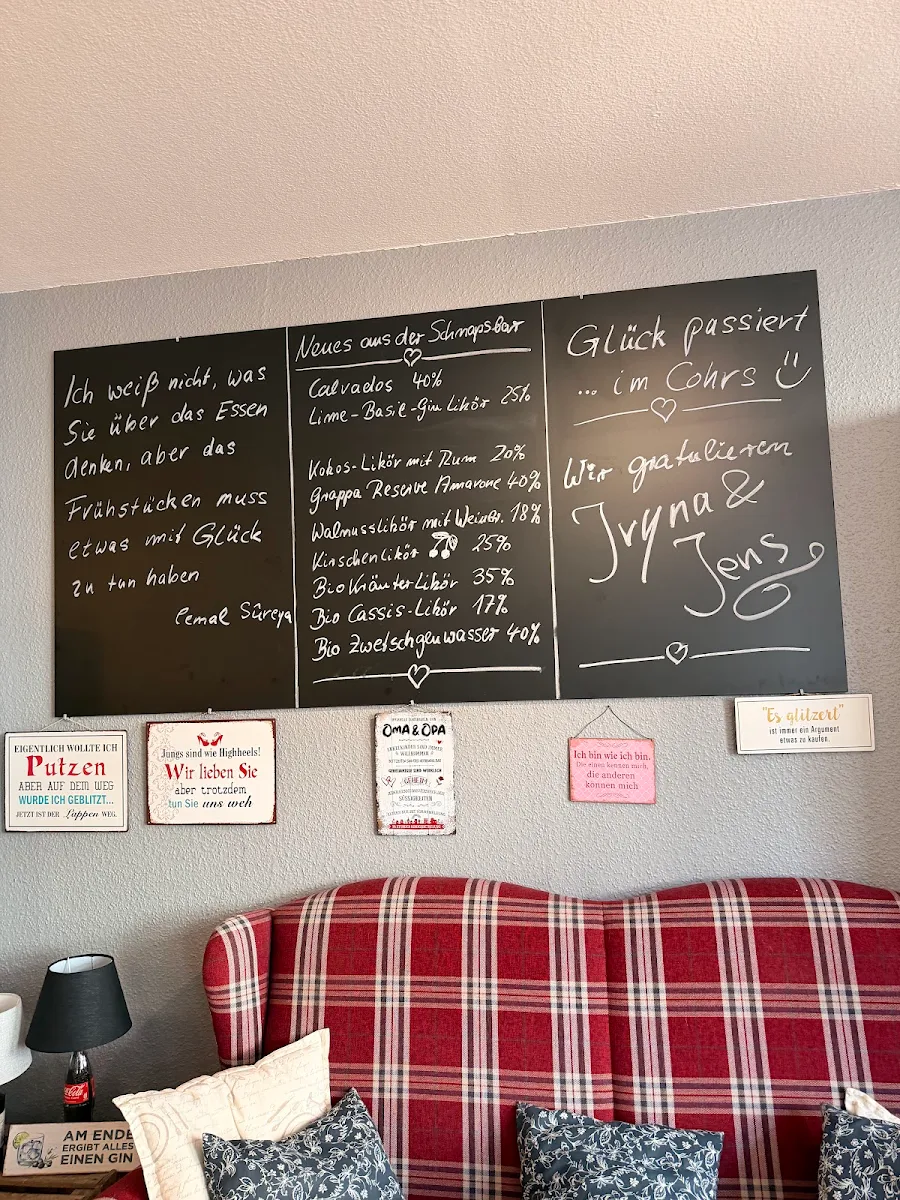 Ich weiß nicht, was
Sie über das Essen
denken, aber das
Frühstücken muss
etwas mit Glück
zu tun haben
Cemal Süreya
Neues aus der Schnapsbar
Calvados 40%
Lime-Basil-Gin Likör 25%
Kokos-Likör mit Rum 20%
Grappa Reserve Amarone 40%
Walnusslikör mit Weinbr. 18%
Kirschenlikör 25%
Bio Kräuter Likör 35%
Bio Cassis-Likör 17%
Bio Zwetschgenwasser 40%
Glück passiert
... im Cohrs
Wir gratulieren
Iryna &
Jens
EIGENTLICH WOLLTE ICH
Putzen
ABER AUF DEM WEG
WURDE ICH GEBLITZT...
JETZT IST DER Lappen WEG.
Jungs sind wie Highheels!
Wir lieben Sie
aber trotzdem
tun Sie uns weh
OMA & OPA
GEHEIM
SÜSSIGKEITEN
Ich bin wie ich bin.
Die einen kennen mich,
die anderen
können mich
"Es glitzert"
ist immer ein Argument
etwas zu kaufen.
Coca-Cola
AM ENDE
ERGIBT ALLES
EINEN GIN